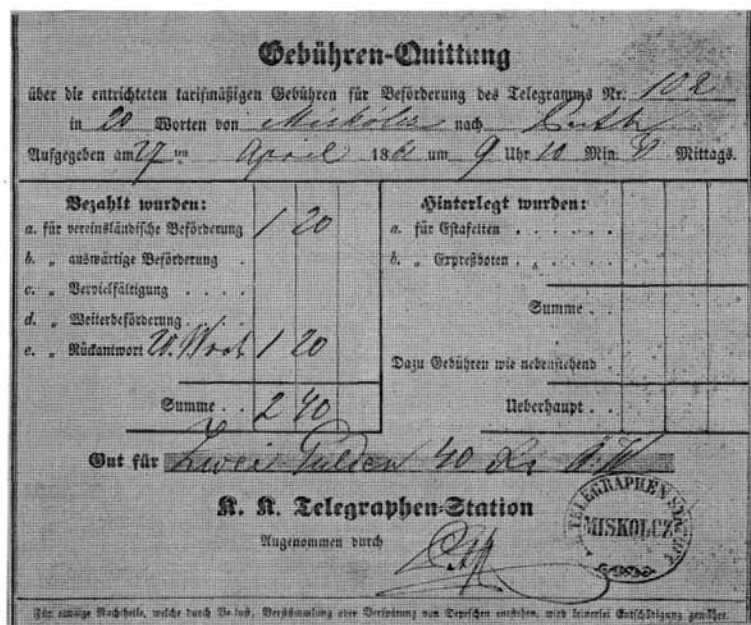 Gebühren-Quittung
über die entrichteten tarifmäßigen Gebühren für Beförderung des Telegramms Nr. 102
in 20 Worten von Miskolcz nach Pesth
Aufgegeben am 27 ten April 186 um 9 Uhr 10 Min. Mittags.
Bezahlt wurden:
a. für vereinsländische Beförderung 1 20
b. „ auswärtige Beförderung .
c. „ Vervielfältigung . . . .
d. „ Weiterbeförderung . .
e. „ Rückantwort 20. Wort 1 20
Summe . . 2 40
Hinterlegt wurden:
a. für Estafetten . . . . . .
b. „ Expreßboten . . . . .
Summe . .
Dazu Gebühren wie nebenstehend .
Ueberhaupt . .
Gut für Zwei Gulden 40 Kr Ö.W
K. K. Telegraphen-Station
Angenommen durch
TELEGRAPHEN STATION
MISKOLCZ
Für etwaige Nachtheile, welche durch Verlust, Verstümmlung oder Verspätung von Depeschen entstehen, wird keinerlei Entschädigung gewährt.